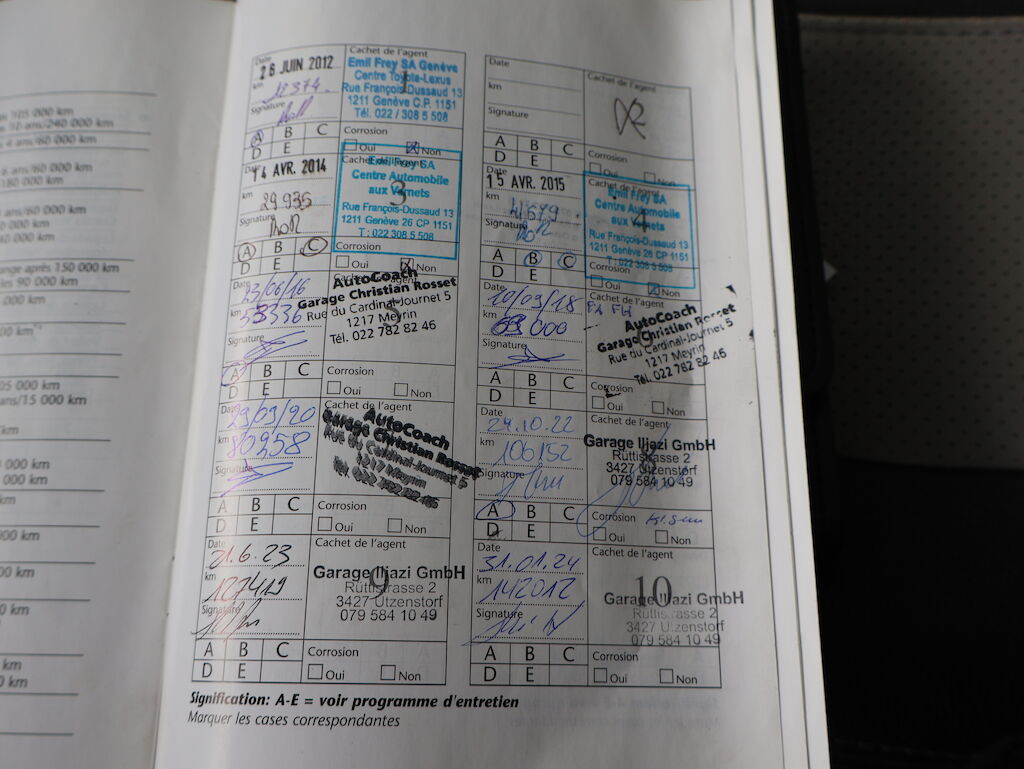 Date
26 JUIN 2012
km
12374
Signature
Cachet de l'agent
Emil Frey SA Genève
Centre Toyota-Lexus
Rue François-Dussaud 13
1211 Genève C.P. 1151
Tél. 022 / 308 5 508
1
A B C
D E
Corrosion
Oui Non
Date
km
Signature
Cachet de l'agent
A B C
D E
Corrosion
Oui Non
Date
14 AVR. 2014
km
29935
Signature
Cachet de l'agent
Emil Frey SA
Centre Automobile
aux Vernets
Rue François-Dussaud 13
1211 Genève 26 CP 1151
T : 022 308 5 508
3
A B C
D E
Corrosion
Oui Non
Date
15 AVR. 2015
km
41679
Signature
Cachet de l'agent
Emil Frey SA
Centre Automobile
aux Vernets
Rue François-Dussaud 13
1211 Genève 26 CP 1151
T : 022 308 5 508
4
A B C
D E
Corrosion
Oui Non
Date
23/06/16
km
53336
Signature
Cachet de l'agent
AutoCoach
Garage Christian Rosset
Rue du Cardinal-Journet 5
1217 Meyrin
Tél. 022 782 82 46
5
A B C
D E
Corrosion
Oui Non
Date
10/03/18
km
000
Signature
Cachet de l'agent
AutoCoach
Garage Christian Rosset
Rue du Cardinal-Journet 5
1217 Meyrin
Tél. 022 782 82 46
A B C
D E
Corrosion
Oui Non
Date
29/09/20
km
80958
Signature
Cachet de l'agent
AutoCoach
Garage Christian Rosset
Rue du Cardinal-Journet 5
1217 Meyrin
Tél. 022 782 82 46
A B C
D E
Corrosion
Oui Non
Date
24.10.22
km
106152
Signature
Cachet de l'agent
Garage Iljazi GmbH
Rüttistrasse 2
3427 Utzenstorf
079 584 10 49
A B C
D E
Corrosion
Oui Non
Date
21.6.23
km
127419
Signature
Cachet de l'agent
Garage Iljazi GmbH
Rüttistrasse 2
3427 Utzenstorf
079 584 10 49
9
A B C
D E
Corrosion
Oui Non
Date
31.01.24
km
142012
Signature
Cachet de l'agent
Garage Iljazi GmbH
Rüttistrasse 2
3427 Utzenstorf
079 584 10 49
10
A B C
D E
Corrosion
Oui Non
Signification: A-E = voir programme d'entretien
Marquer les cases correspondantes